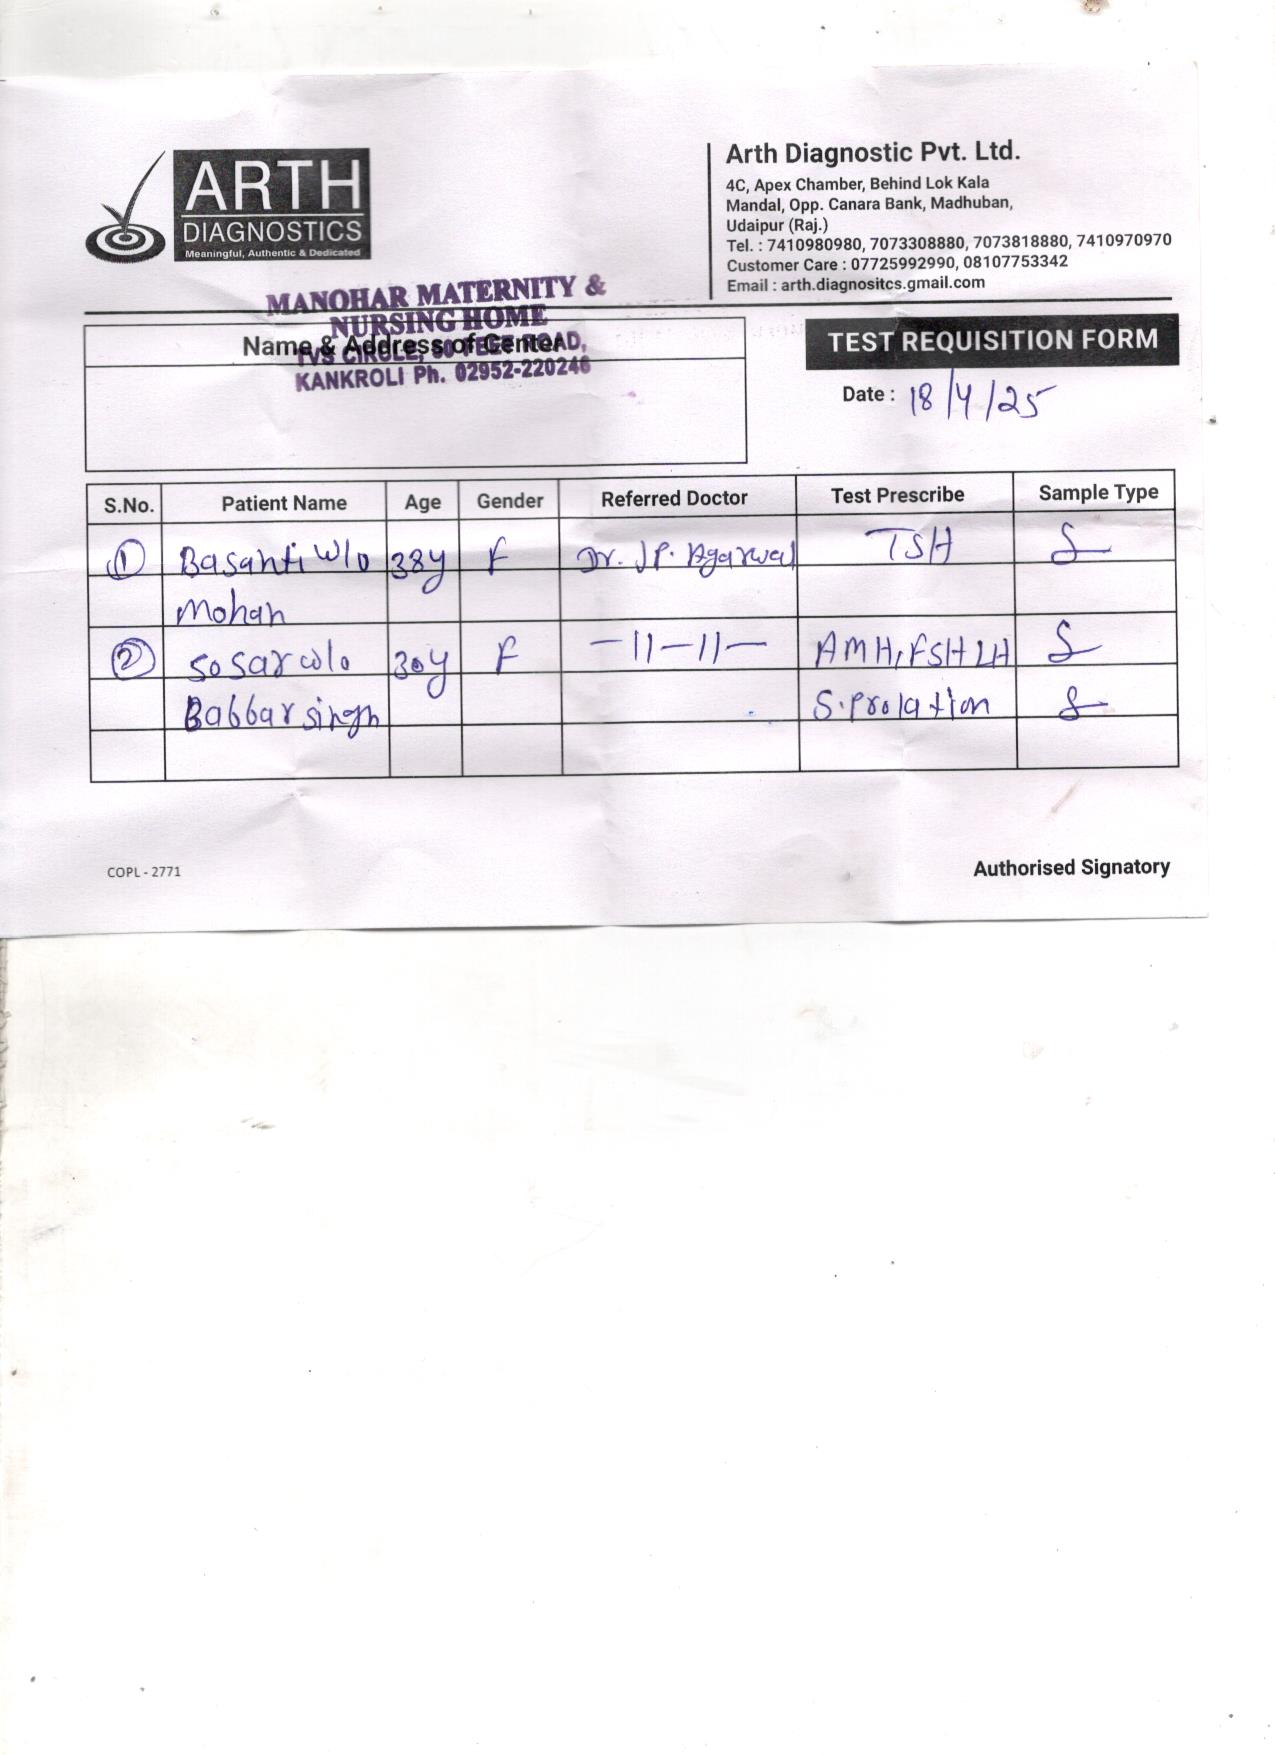 ARTH
DIAGNOSTICS
Meaningful, Authentic & Dedicated
Arth Diagnostic Pvt. Ltd.
4C, Apex Chamber, Behind Lok Kala
Mandal, Opp. Canara Bank, Madhuban,
Udaipur (Raj.)
Tel. : 7410980980, 7073308880, 7073818880, 7410970970
Customer Care : 07725992990, 08107753342
Email : arth.diagnositcs.gmail.com
MANOHAR MATERNITY &
NURSING HOME
Name & Address of Center
CIRCLE, ROAD,
KANKROLI Ph. 02952-220246
TEST REQUISITION FORM
Date : 18/4/25
S.No. Patient Name Age Gender Referred Doctor Test Prescribe Sample Type
1 Basanti w/o 38y F Dr. J.P. Agarwal TSH S
Mohan
2 Sosar w/o 30y F -11-11- AMH, FSH LH S
Babbar singh S. prolation S
COPL - 2771
Authorised Signatory